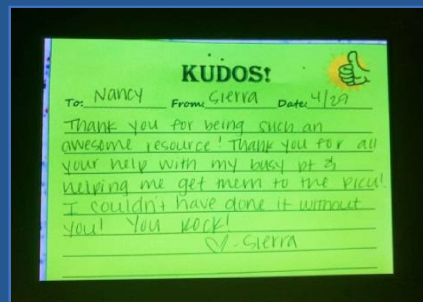 KUDOS!
To: Nancy From: Sierra Date: 4/29
Thank you for being such an
awesome resource! Thank you for all
your help with my busy pt &
helping me get them to the PICU!
I couldn't have done it without
you! You ROCK!
♡-Sierra